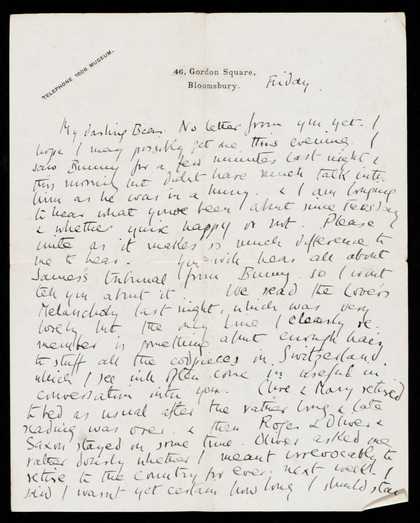 TELEPHONE 1608 MUSEUM.
46, Gordon Square,
Bloomsbury.
Friday.
My darling Bear. No letter from you yet. I
hope I may possibly get one this evening. I
saw Bunny for a few minutes last night &
this morning but didn't have much talk with
him as he was in a hurry. & I am longing
to hear what you've been about since Tuesday
& whether you're happy or not. Please
write as it makes so much difference to
me to hear. You will hear all about
James's tribunal from Bunny so I won't
tell you about it. We read the Lover's
Melancholy last night, which was very
lovely but the only line I clearly re-
member is something about enough hair
to stuff all the codpieces in Switzerland.
which I see will often come in useful in
conversation with you. Clive & Mary retired
to bed as usual after the rather long & late
reading was over. & then Roger & Oliver &
Saxon stayed on some time. Oliver asked me
rather dourly whether I meant irrevocably to
retire to the country for ever next week. I
said I wasn't yet certain how long I should stay